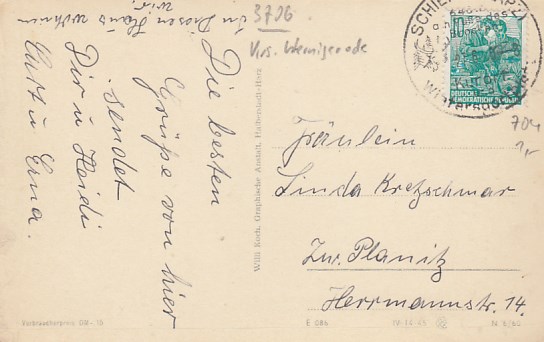 In diesen Haus wohnen
wir
Die besten
Grüße von hier
sendet
Dir u Heidi
Curt u Erna.
3726
Krs. Wernigerode
SCHIE
10
DEUTSCHE
DEMOKRATISCHE
704
1,-
Fräulein
Linda Kretzschmar
Zw. Planitz
Herrmannstr. 14.
Willi Koch, Graphische Anstalt, Halberstadt-Harz
Verbraucherpreis DM -,15
E 086
IV-14-45